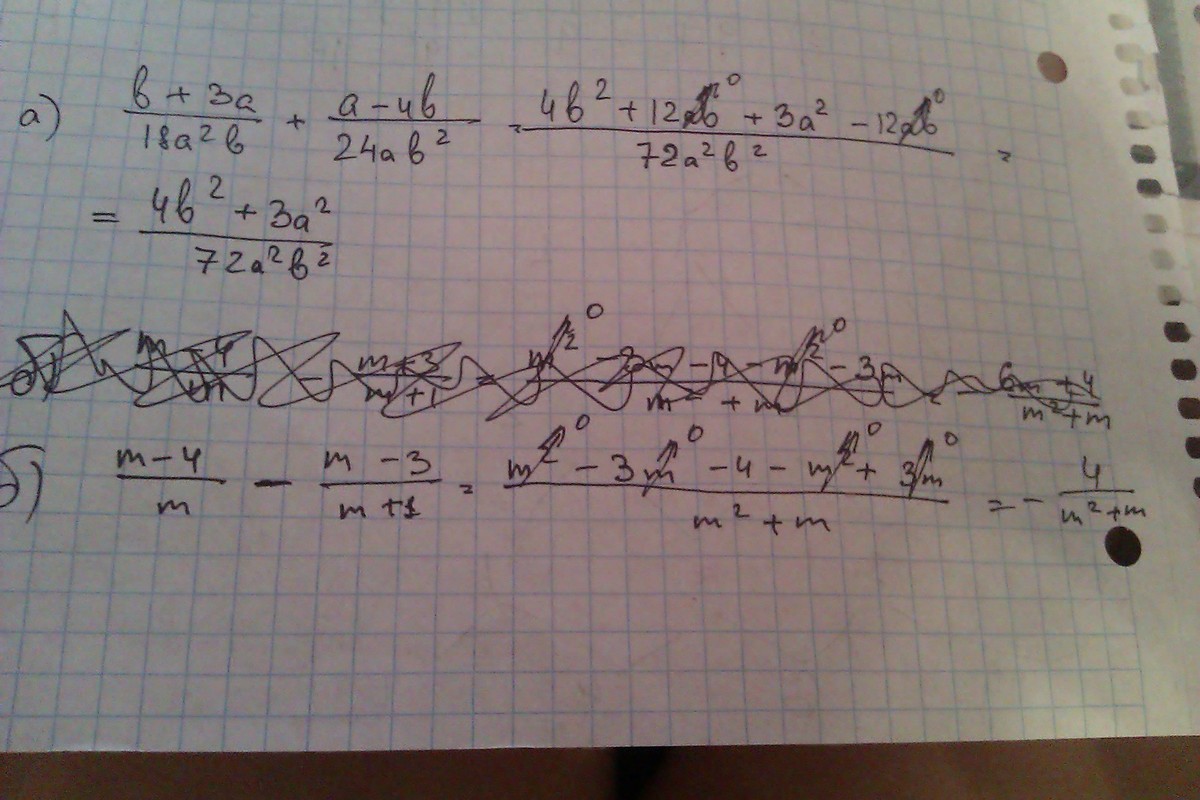 а) (в + 3а)/(18а²в) + (а - 4в)/(24ав²) = (4в² + 12ав + 3а² - 12ав)/(72а²в²) =
= (4в² + 3а²)/(72а²в²)
б) (m - 4)/m - (m - 3)/(m + 1) = (m² - 3m - 4 - m² + 3m)/(m² + m) = - 4/(m² + m)